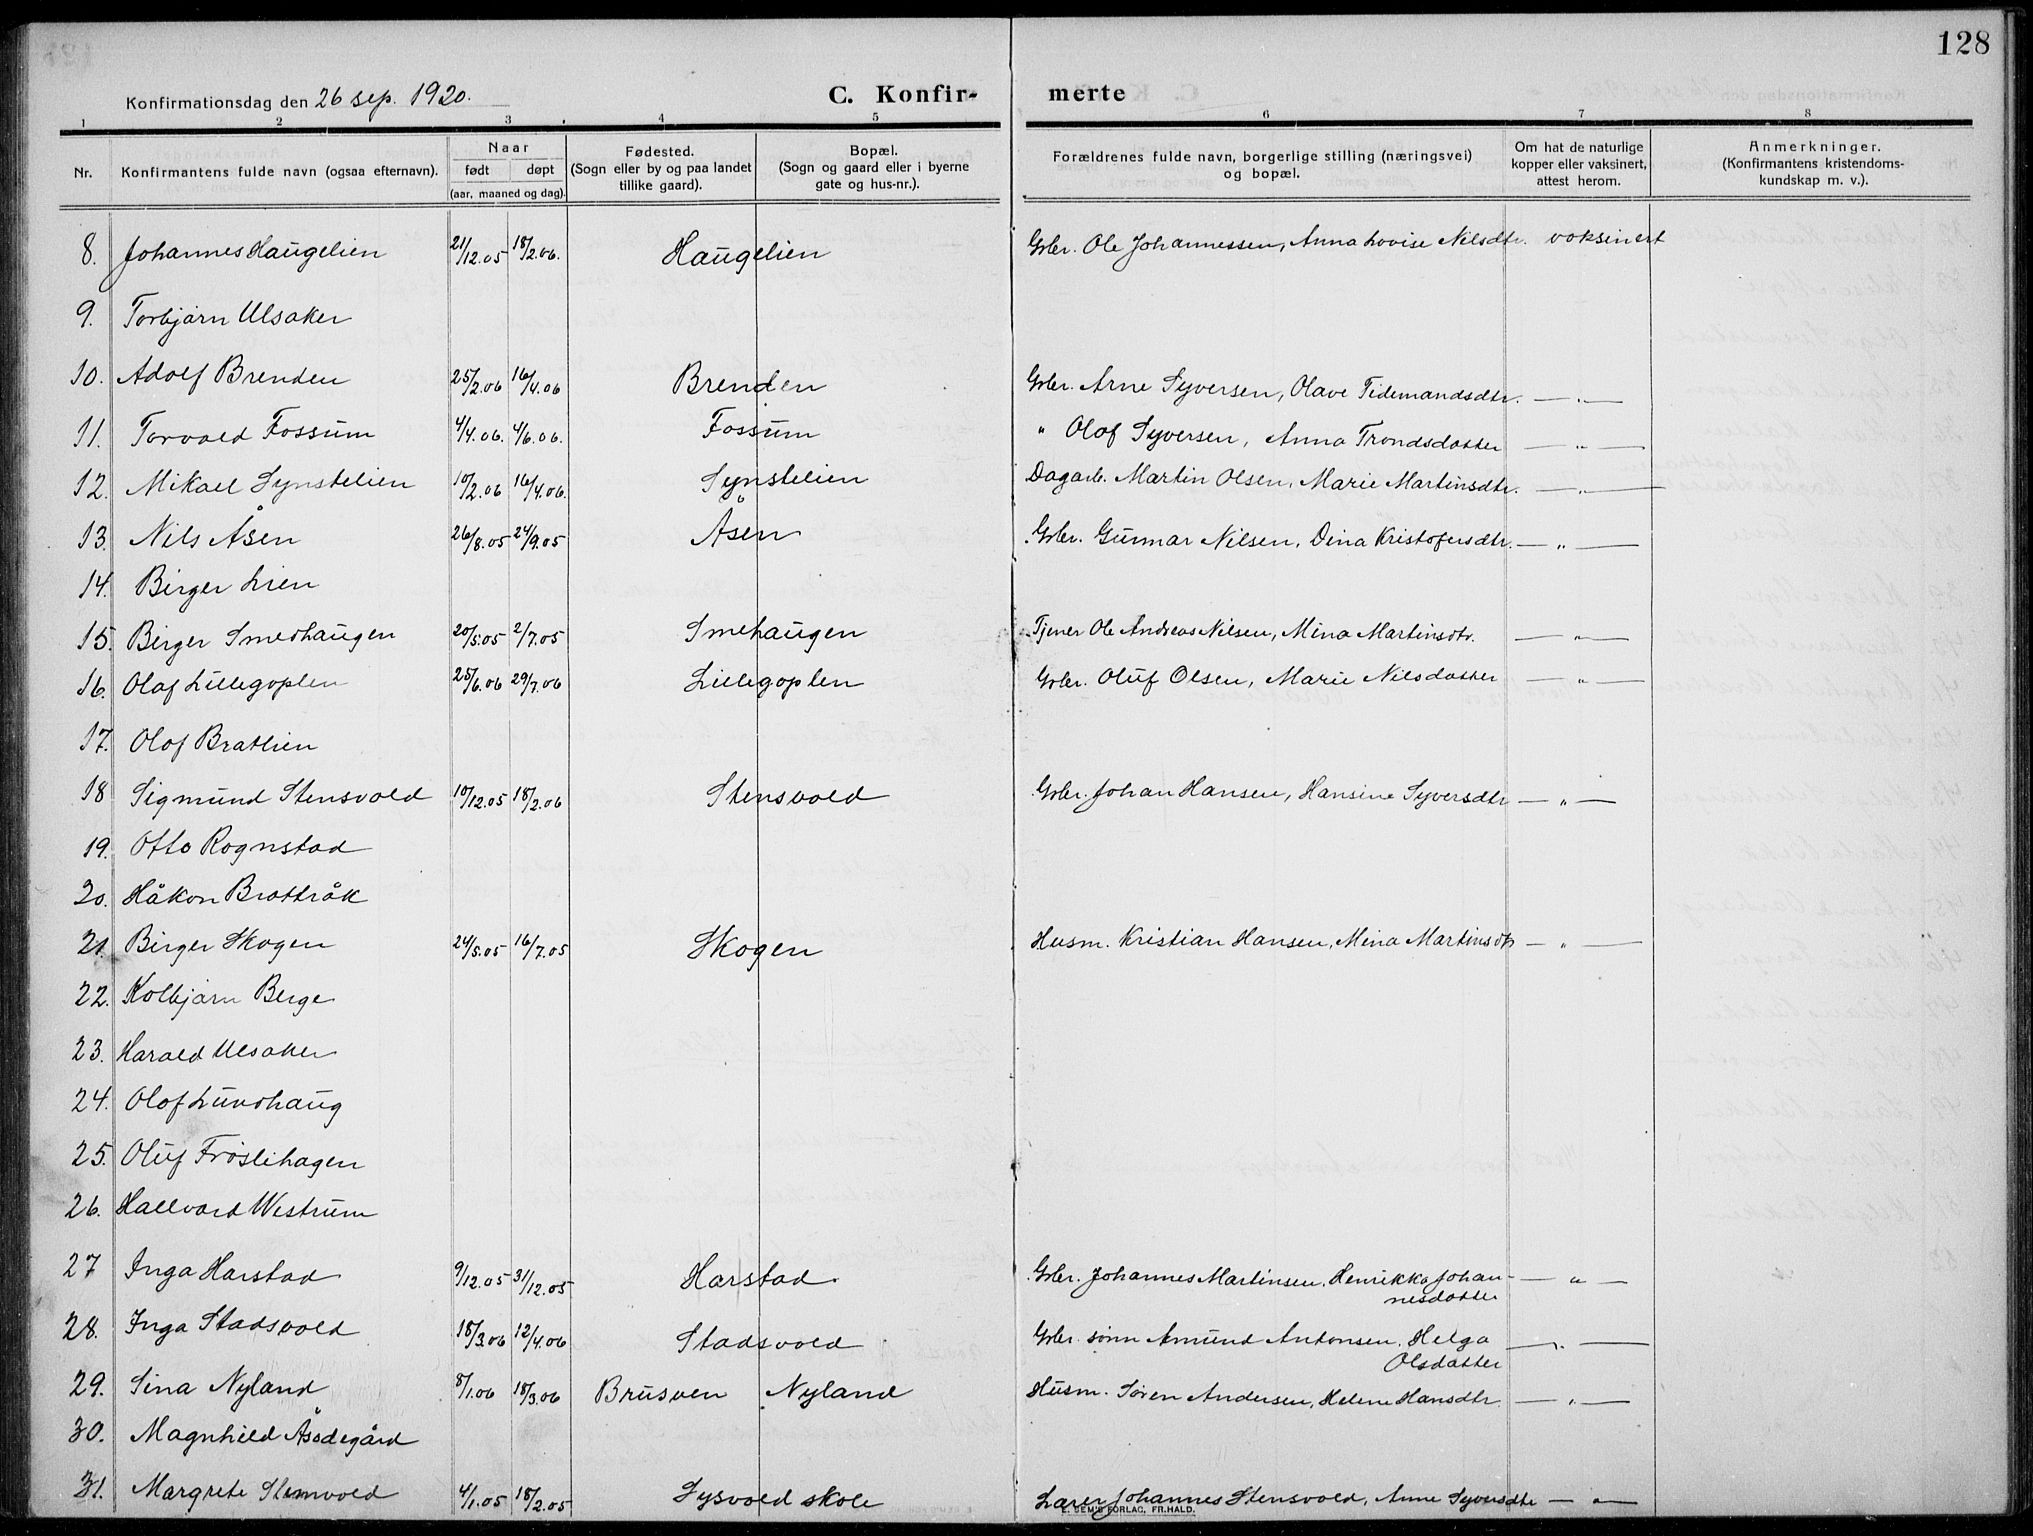 128
Konfirmationsdag den 26 sep. 1920.
C. Konfir- merte
1 2 3 4 5 6 7 8
Nr. Konfirmantens fulde navn (ogsaa efternavn). Naar født døpt (aar, maaned og dag). Fødested. (Sogn eller by og paa landet tillike gaard). Bopæl. (Sogn og gaard eller i byerne gate og hus-nr.). Forældrenes fulde navn, borgerlige stilling (næringsvei) og bopæl. Om hat de naturlige kopper eller vaksinert, attest herom. Anmerkninger. (Konfirmantens kristendoms-kundskap m. v.).
8. Johannes Haugelien 21/12.05 18/2.06. Haugelien Grbr. Ole Johannessen, Anna Lovise Nilsdtr. vaksinert
9. Torbjørn Ulsaker
10. Adolf Brenden 25/2.06 16/4.06 Brenden Grbr. Arne Syversen, Olave Tidemandsdtr. — „ —
11. Torvald Fossum 4/4.06. 4/6.06. Fossum " Olaf Syversen, Anna Trondsdatter — „ —
12. Mikael Synstelien 10/2.06 16/4.06. Synstelien Dagarb. Martin Olsen, Marie Martinsdtr. — „ —
13. Nils Åsen 26/8.05 24/9.05 Åsen Grbr. Gunnar Nilsen, Dina Kristofersdtr. — „ —
14. Birger Lien
15. Birger Smedhaugen 20/5.05 2/7.05 Smehaugen Tjener Ole Andreas Nilsen, Mina Martinsdtr. — „ —
16. Olaf Lillegoplen 25/6.06 29/7.06 Lillegoplen Grbr. Oluf Olsen, Marie Nilsdatter — „ —
17. Olaf Bratlien
18 Sigmund Stensvold 10/12.05 18/2.06 Stensvold Grbr. Johan Hansen, Hansine Syversdtr — „ —
19. Otto Rognstad
20. Håkon Brattråk
21. Birger Skogen 24/5.05 16/7.05 Skogen Husm. Kristian Hansen, Mina Martinsdtr — „ —
22. Kolbjørn Berge
23. Harald Ulsaker
24. Olaf Lundhaug
25. Oluf Frøslihagen
26. Hallvard Westrum
27 Inga Harstad 9/12.05 31/12.05 Harstad Grbr. Johannes Martinsen, Henrikka Johan- — „ —
nesdatter
28. Inga Stadsvold 18/3.06 12/4.06 Stadsvold Grbr. sønn Amund Antonsen, Helga — „ —
Olsdatter
29. Sina Nyland 8/1.06 18/3.06 Brusven Nyland Husm. Søren Andersen, Helene Hansdtr. — „ —
30. Magnhild Åssdegård
31. Margrete Stensvold 4/1.05 18/2.05 Sysvold skole Lærer Johannes Stensvold, Anne Syversdtr — „ —
E. SEM'S FORLAG, FR.HALD.